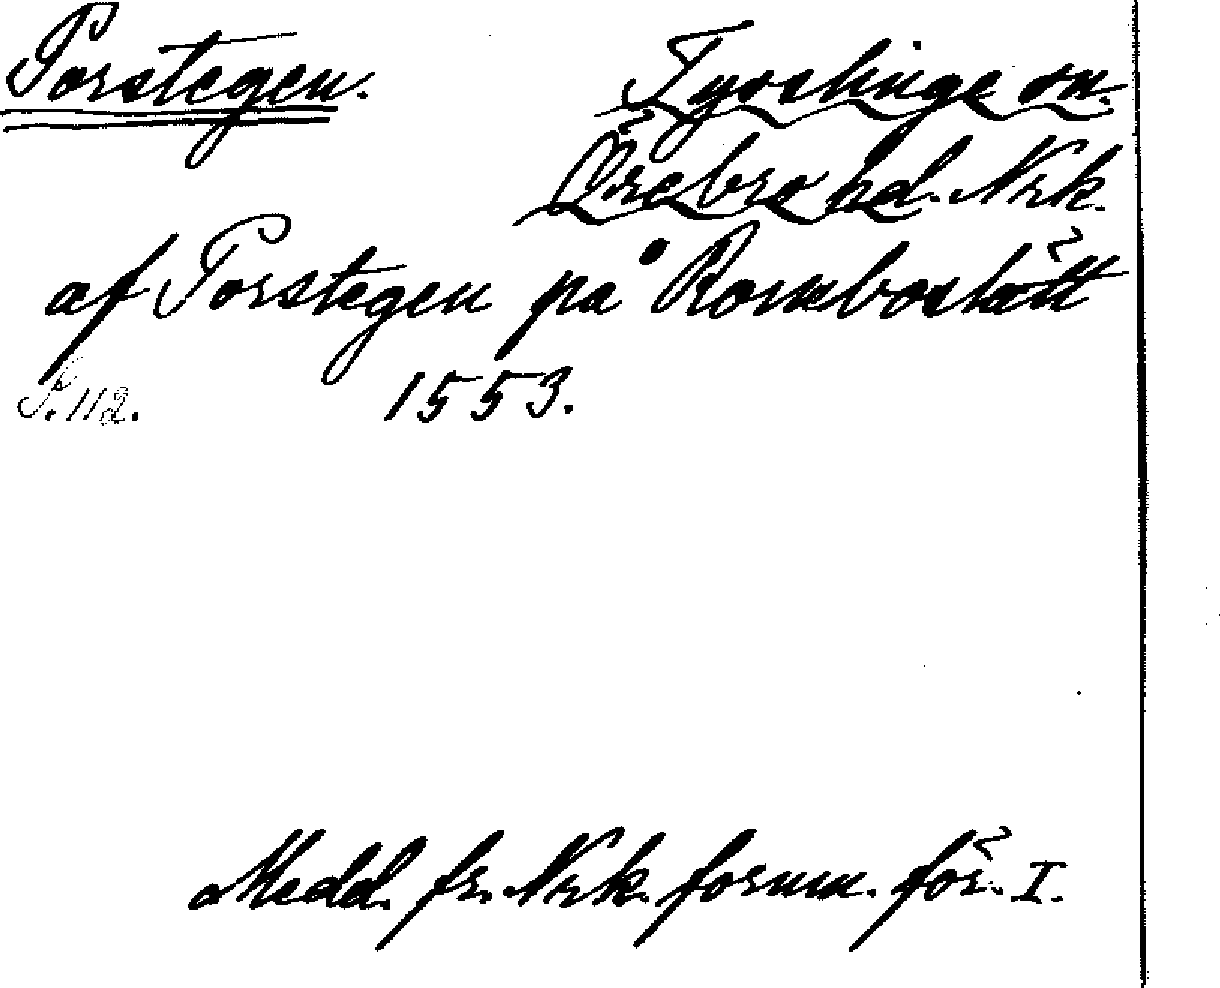 Porstegen. Tysslinge sn.
Örebro hd. Nrk.
af Porstegen på
S. 112. 1553.
Medd. fr. Nrk. fornm. för. I.